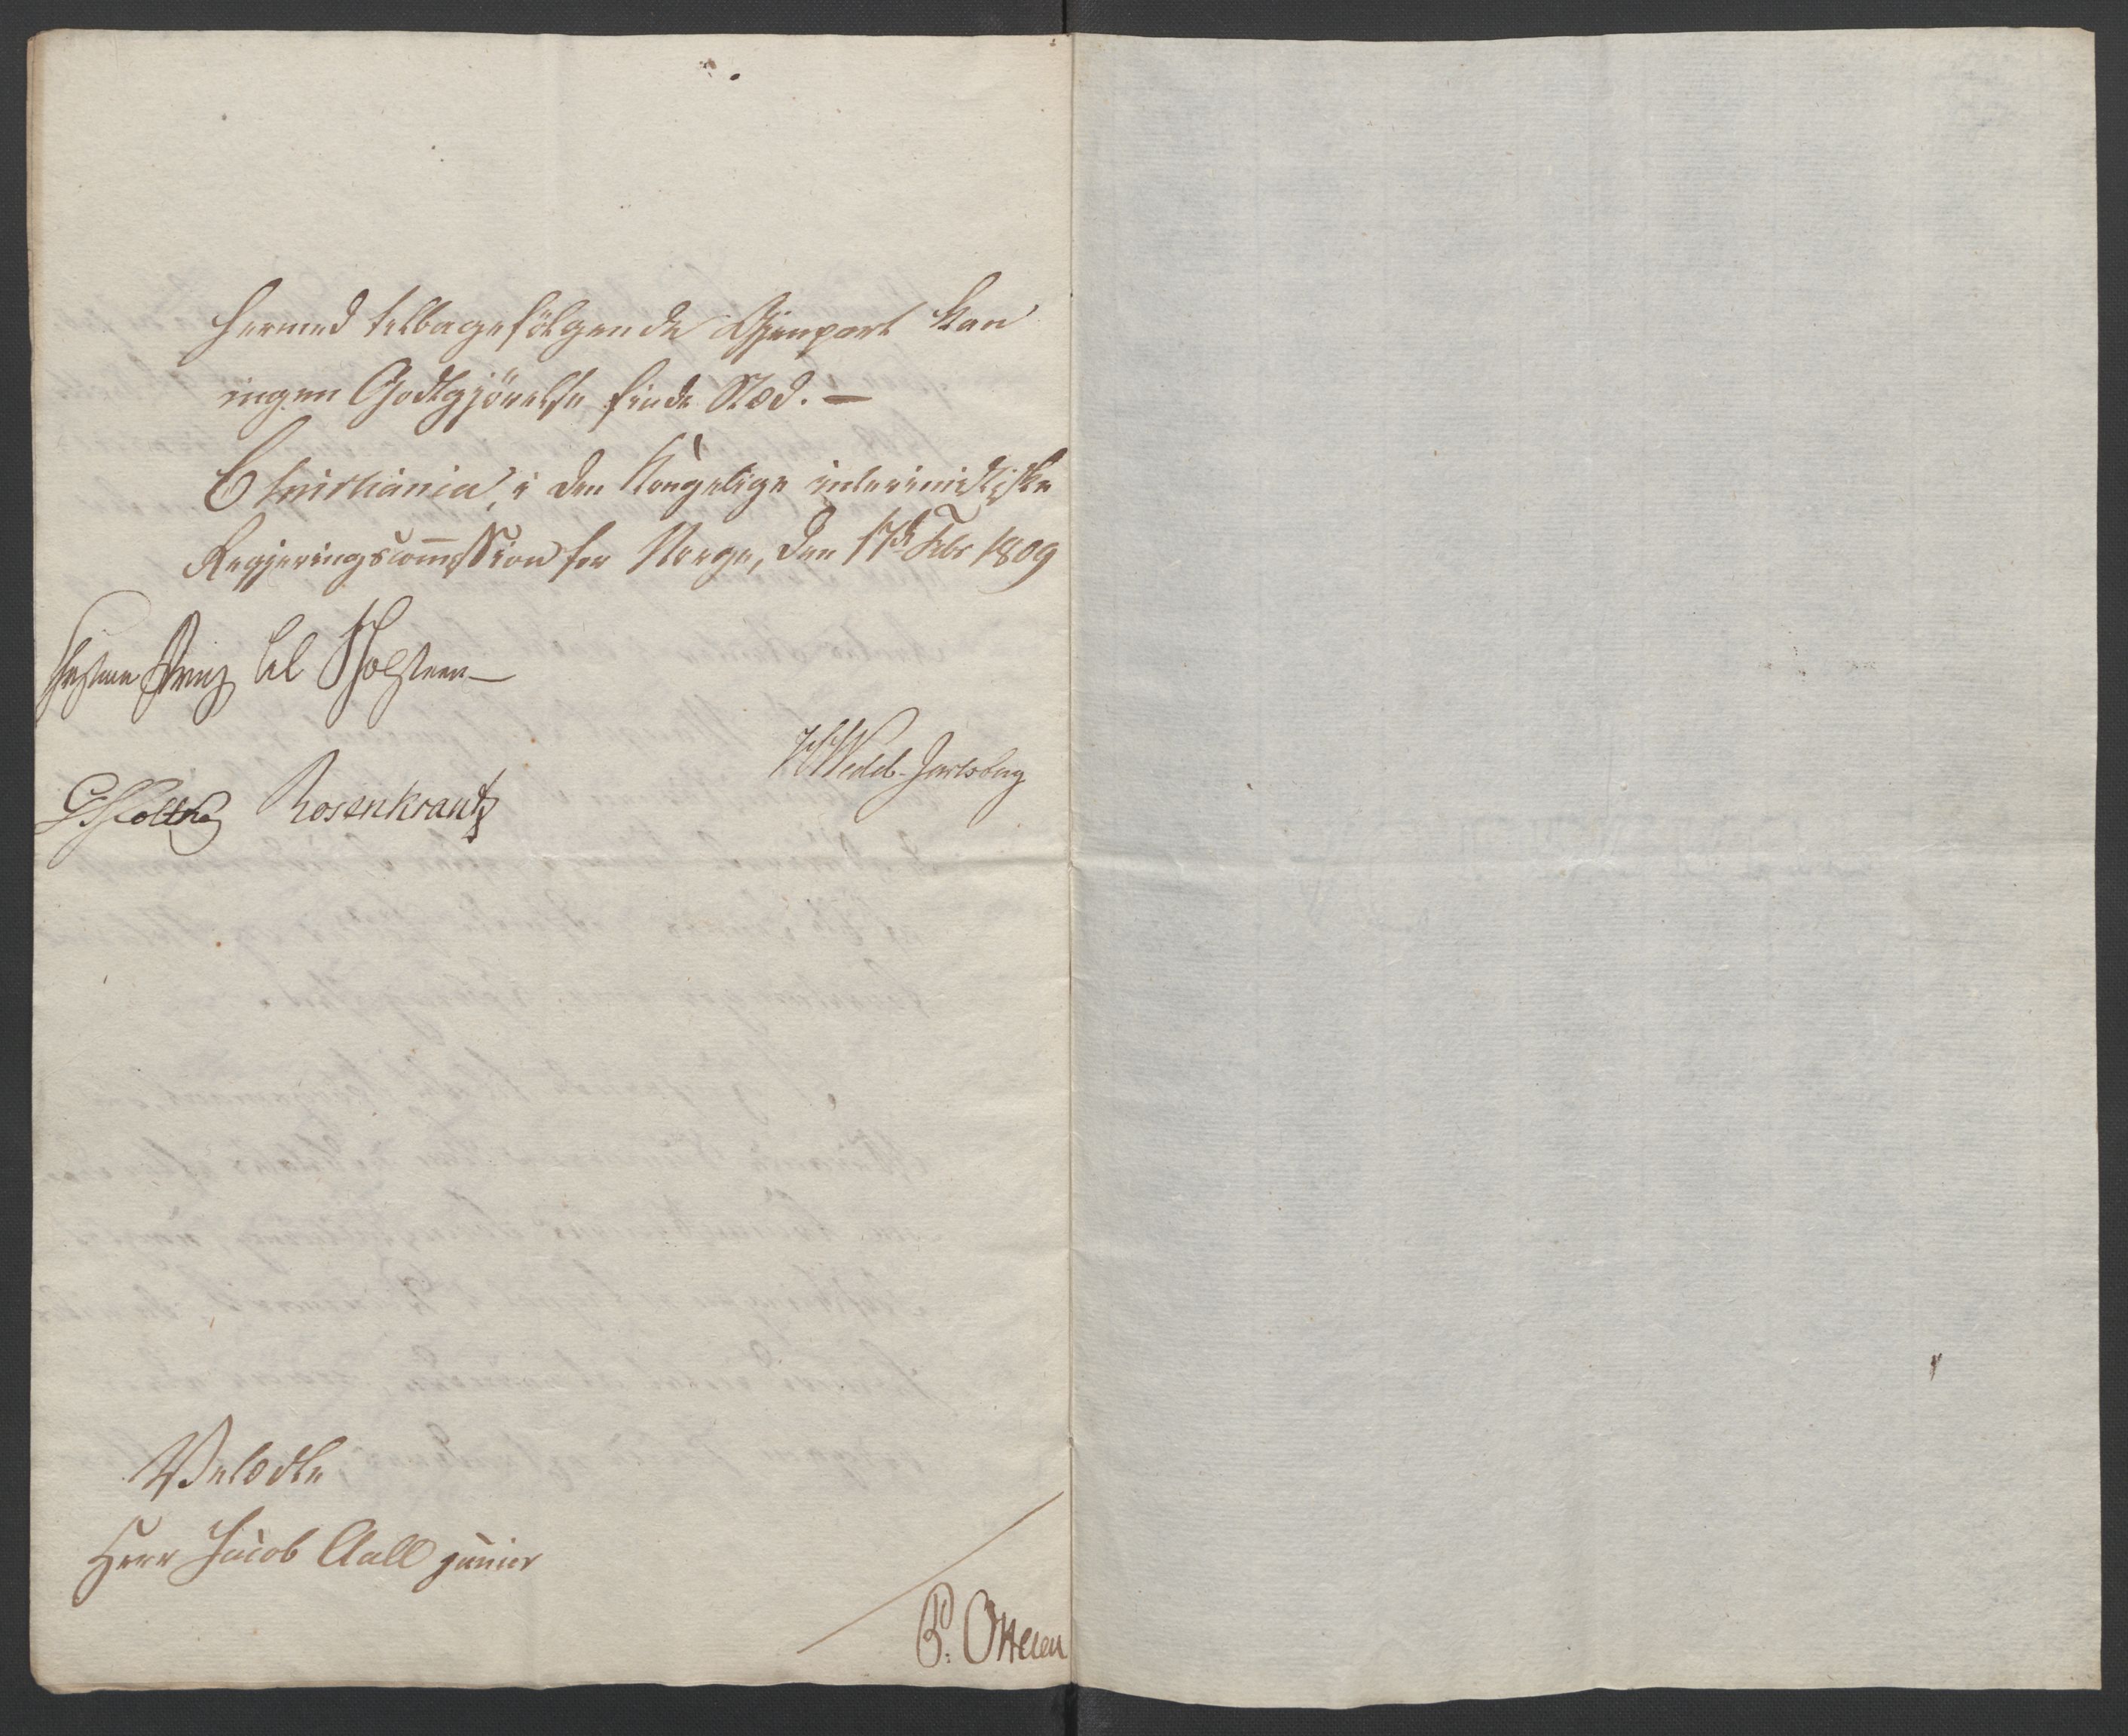 hermed tilbagefölgende Gjenpart kan
ingen Godtgjörelse finde Stæd. —
Christiania, i den Kongelige interimistiske
Regjeringscom̅ission for Norge, den 17de Febr 1809
Prinz til Holsteen —
Wedel-Jarlsberg
GMoltke Rosenkrantz
Velædle
Herr Jacob Aall junior
P. Ottesen